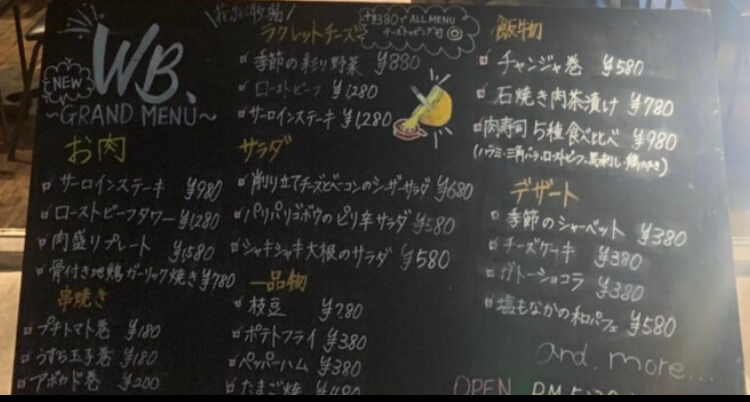 NEW
W.B.
~GRAND MENU~
お肉
サーロインステーキ ¥980
ローストビーフタワー ¥1280
肉盛りプレート ¥1580
骨付き地鶏ガーリック焼き ¥780
串焼き
プチトマト巻 ¥180
うずら玉子巻 ¥180
アボカド巻 ¥200
ラクレットチーズ
+¥380で ALL MENU
チーズトッピング可
季節の彩り野菜 ¥880
ローストビーフ ¥1280
サーロインステーキ ¥1280
サラダ
削り立てチーズとベーコンのシーザーサラダ ¥680
パリパリゴボウのピリ辛サラダ ¥580
シャキシャキ大根のサラダ ¥580
一品物
枝豆 ¥280
ポテトフライ ¥380
ペッパーハム ¥380
たまご焼
飯物
チャンジャ巻 ¥580
石焼き肉茶漬け ¥780
肉寿司 5種食べ比べ ¥980
(ハラミ・三角バラ・ローストビーフ・馬刺し・鶏
デザート
季節のシャーベット ¥380
チーズケーキ ¥380
ガトーショコラ ¥380
塩もなかの和パフェ ¥580
and. more...
OPEN PM